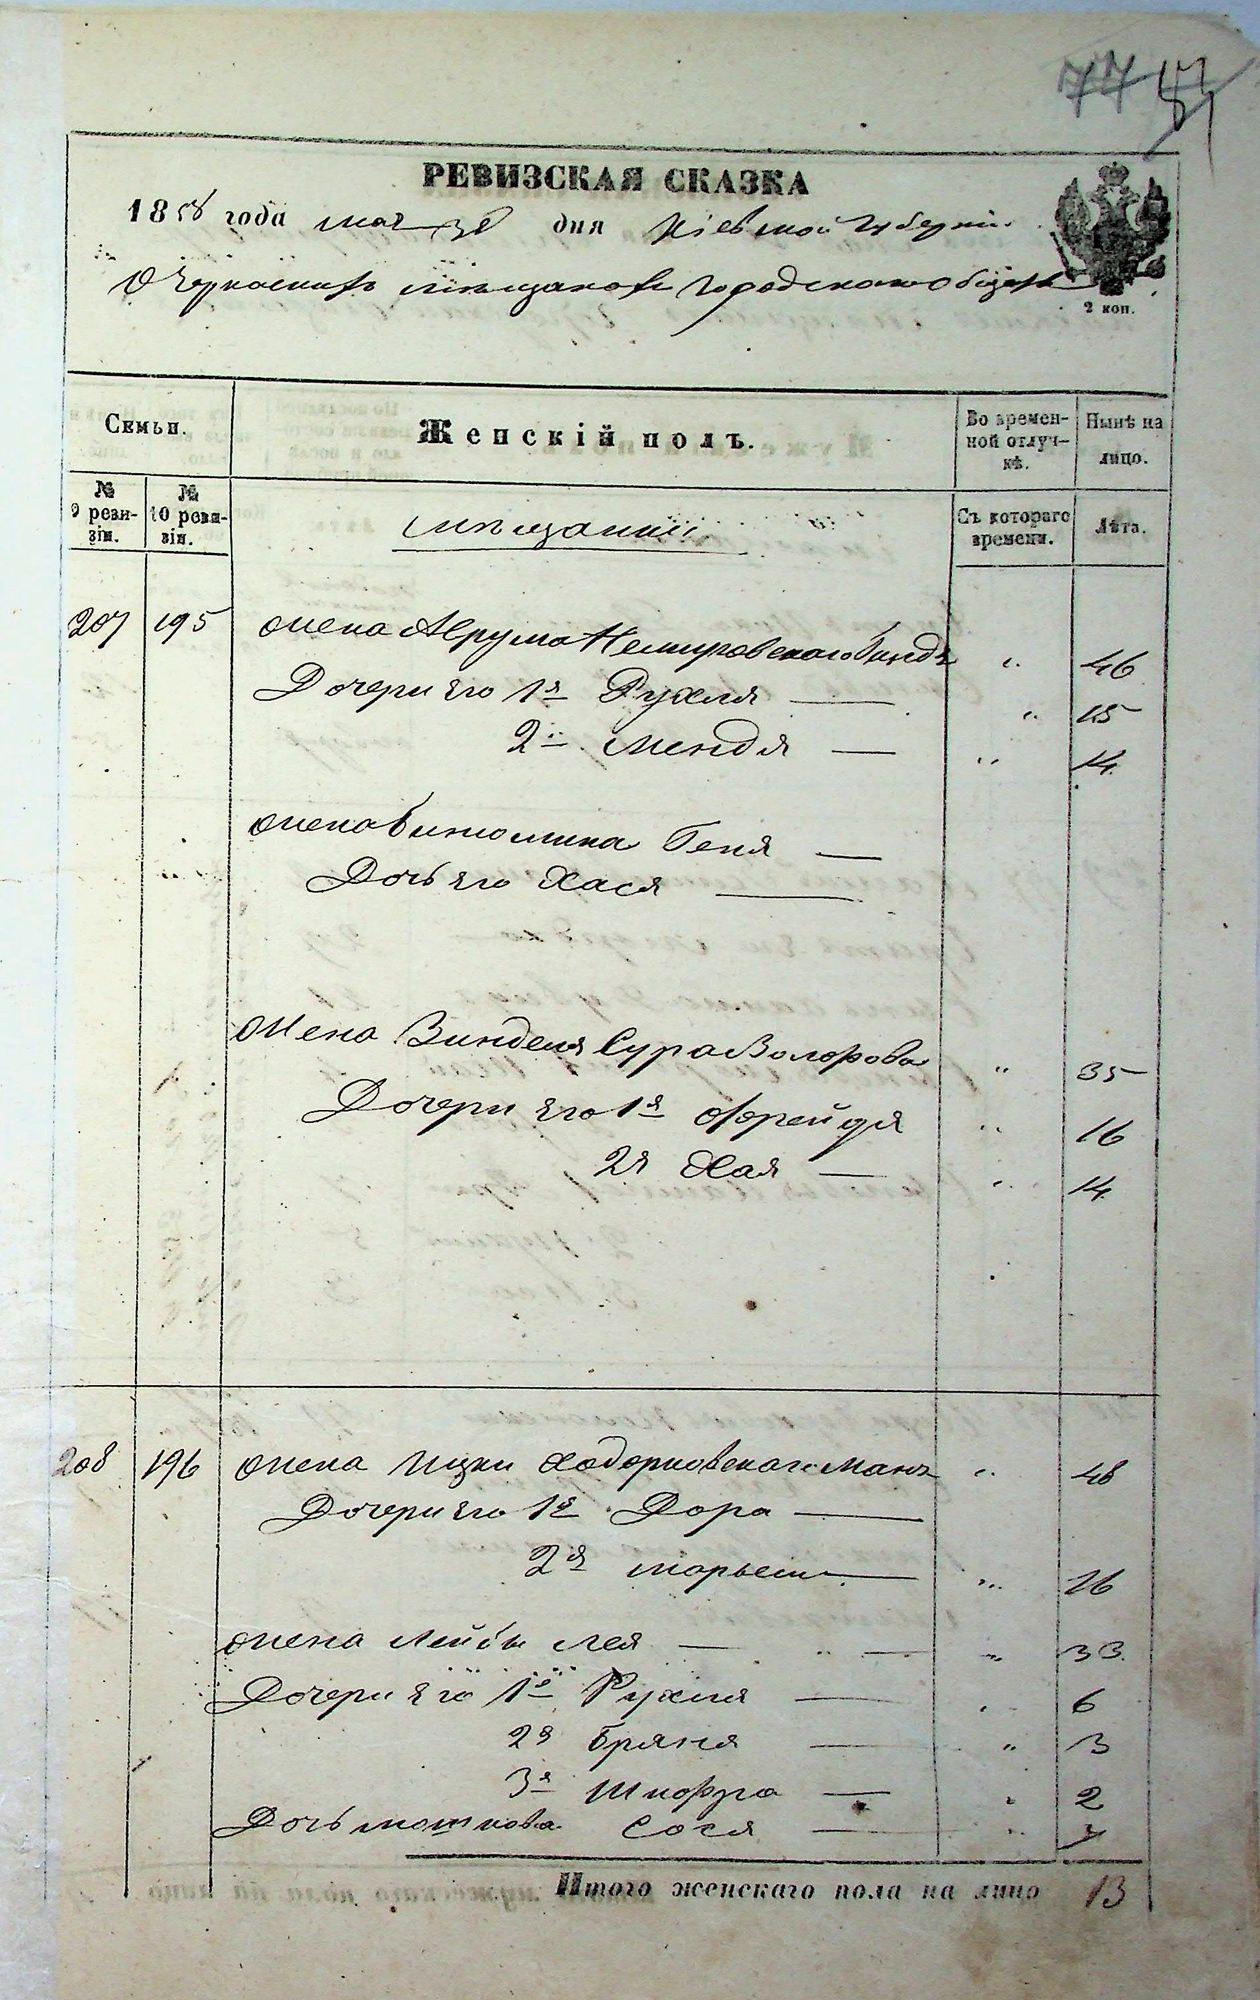 РЕВИЗСКАЯ СКАЗКА
1858 года мая дня Кіевской Губерніи
О Черкаскихъ мѣщанахъ Городскаго Общ
2 коп.
Семьи.
Женскій полъ.
Во времен-
ной отлуч-
кѣ.
Нынѣ на
лицо.
№
9 реви-
зіи.
№
10 реви-
зіи.
мѣщанки
Съ котораго
времени.
Лѣта.
207 195 жена Аврума Немировскаго " 46
Дочери его 1я Рухля — " 15
2я Мендя — " 14
жена Винюмина Геня —
Дочь его Хася —
жена Зинделя Сура " 35
Дочери его 1я Фрейдя " 16
2я Хая — " 14
208 196 жена Ицки Ходорковскаго " 48
Дочери его 1я Дора —
2я Марьем — " 16
жена Лейбы Лея — " 33
Дочери его 1я Рухля — " 6
2я Бряня — " 3
3я — " 2
Дочь Мошкова Сося — "
Итого женскаго пола на лицо 13